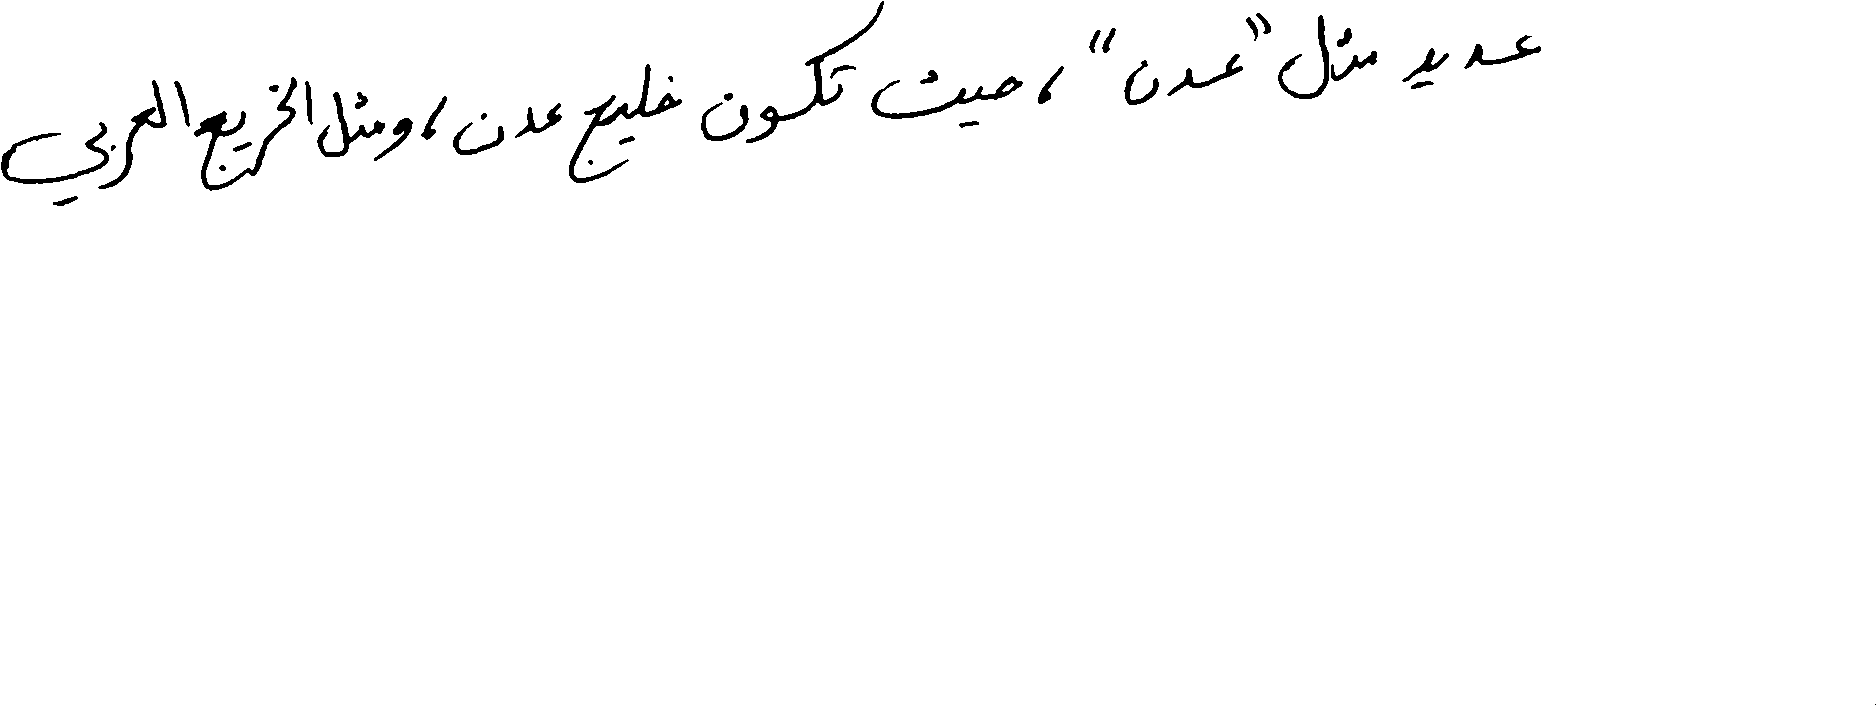 عديد مثل "عدن"، حيث تكون خليج عدن، ومثل الخريج العربي